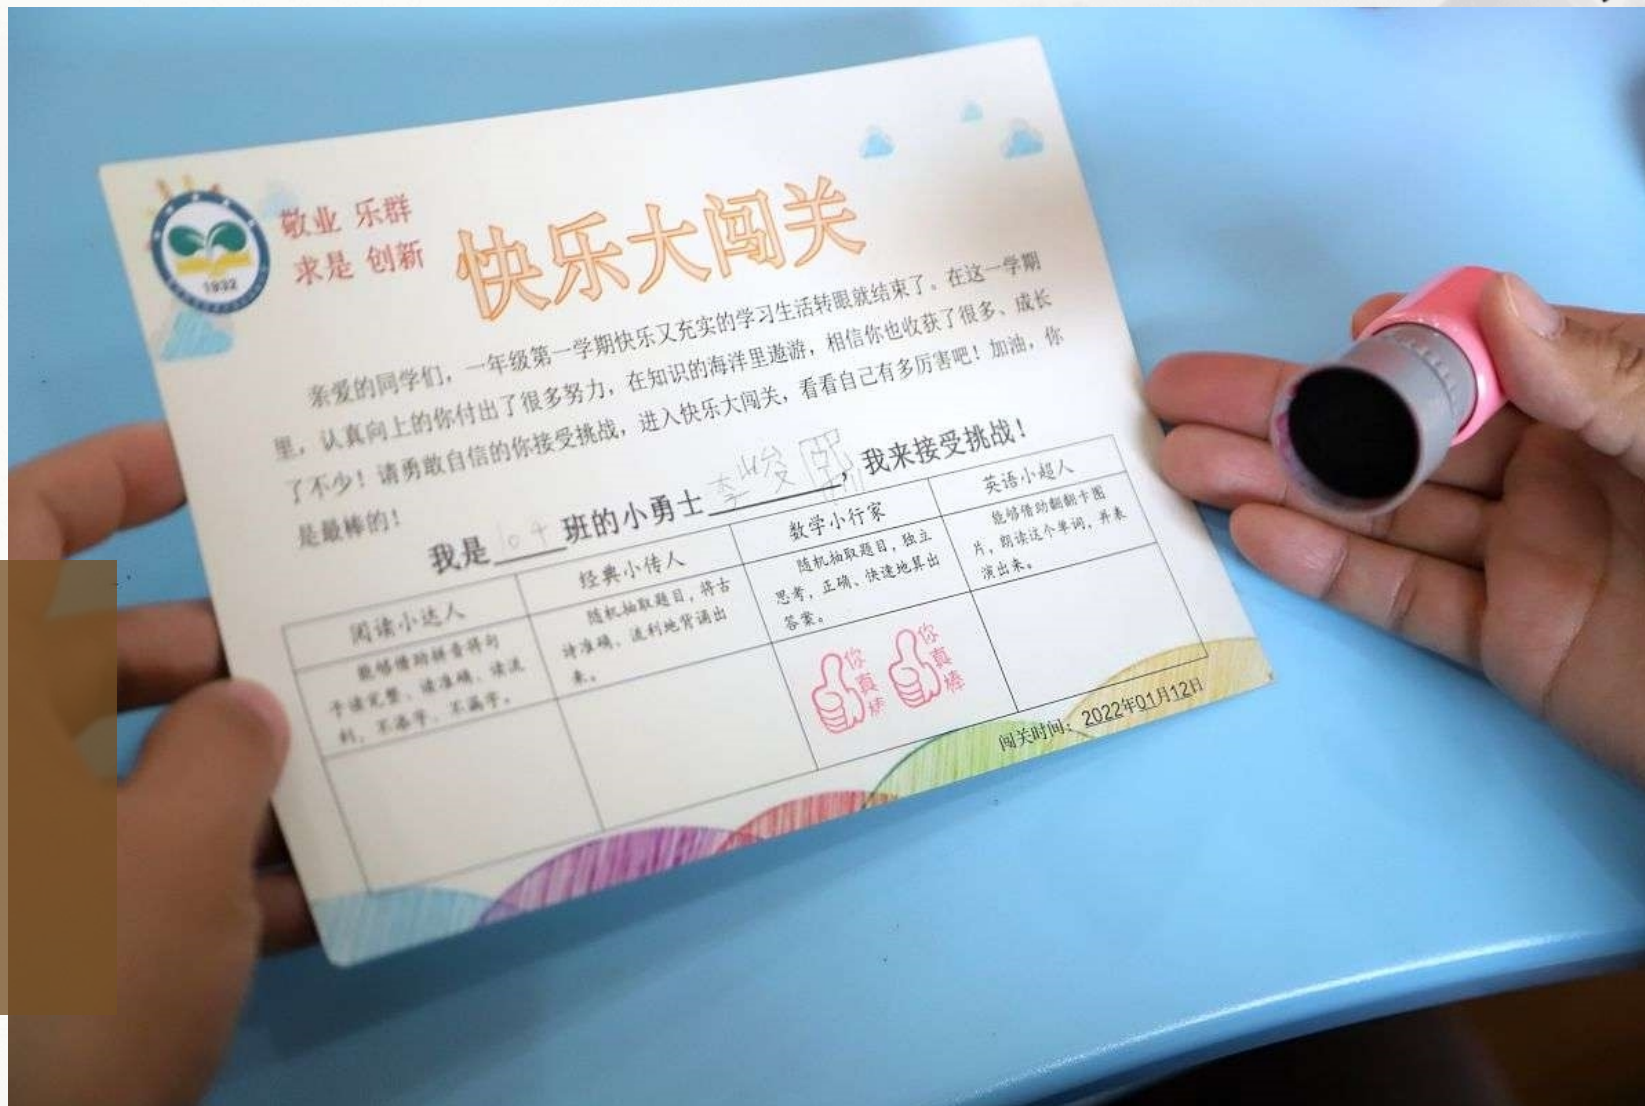 敬业 乐群
求是 创新
1932
快乐大闯关
亲爱的同学们，一年级第一学期快乐又充实的学习生活转眼就结束了。在这一学期
里，认真向上的你付出了很多努力，在知识的海洋里遨游，相信你也收获了很多、成长
了不少！请勇敢自信的你接受挑战，进入快乐大闯关，看看自己有多厉害吧！加油，你
是最棒的！
我是 班的小勇士李峻熙，我来接受挑战！
阅读小达人
经典小传人
数学小行家
英语小超人
能够借助拼音将句
子读完整、读准确、读流
利，不添字、不漏字。
随机抽取题目，将古
诗准确、流利地背诵出
来。
随机抽取题目，独立
思考，正确、快速地算出
答案。
能够借助翻翻卡图
片，朗读这个单词，并表
演出来。
你真棒
你真棒
闯关时间：2022年01月12日